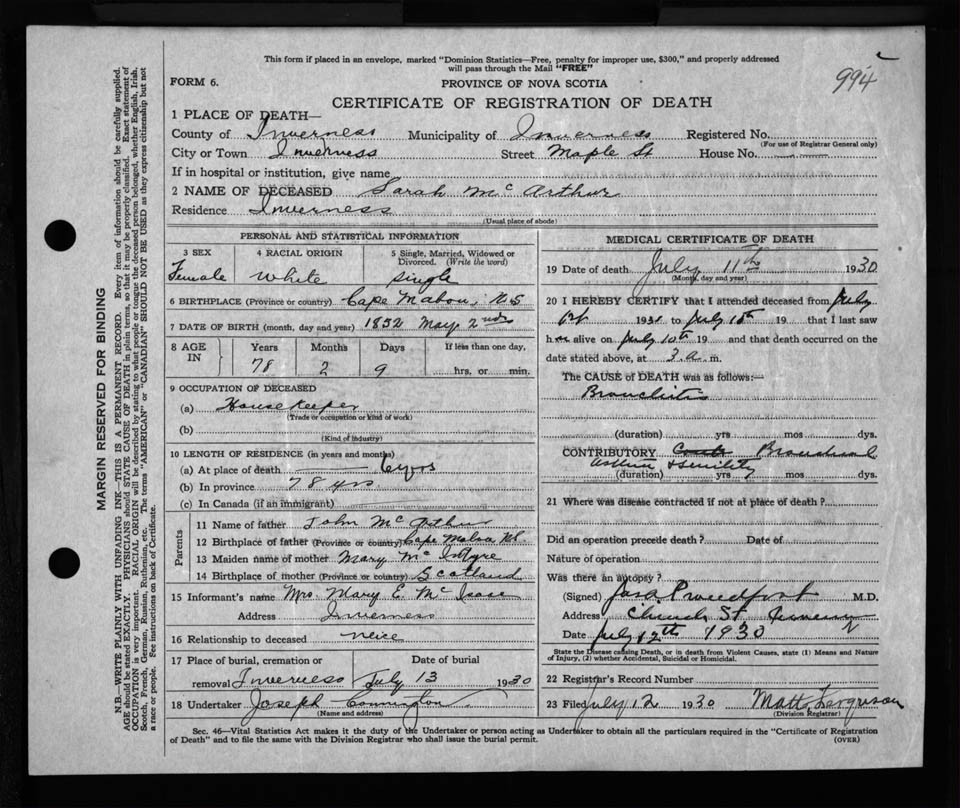 This form if placed in an envelope, marked "Dominion Statistics—Free, penalty for improper use, $300," and properly addressed
will pass through the Mail "FREE"
994
FORM 6.
PROVINCE OF NOVA SCOTIA
CERTIFICATE OF REGISTRATION OF DEATH
1 PLACE OF DEATH—
County of Inverness Municipality of Inverness Registered No.
(For use of Registrar General only)
City or Town Inverness Street Maple St House No.
If in hospital or institution, give name
2 NAME OF DECEASED Sarah Mc Arthur
Residence Inverness
(Usual place of abode)
PERSONAL AND STATISTICAL INFORMATION
3 SEX 4 RACIAL ORIGIN 5 Single, Married, Widowed or
Divorced. (Write the word)
Female White Single
6 BIRTHPLACE (Province or country) Cape Mabou, N S
7 DATE OF BIRTH (month, day and year) 1852 May 2nd
8 AGE IN Years Months Days If less than one day,
78 2 9 hrs. or min.
9 OCCUPATION OF DECEASED
(a) House Keeper
(Trade or occupation or kind of work)
(b)
(Kind of industry)
10 LENGTH OF RESIDENCE (in years and months)
(a) At place of death yrs
(b) In province 78 yrs
(c) In Canada (if an immigrant)
Parents
11 Name of father John Mc Arthur
12 Birthplace of father (Province or country) Cape Mabou NS.
13 Maiden name of mother Mary Mc Intyre
14 Birthplace of mother (Province or country) Scotland
15 Informant's name Mrs. Mary E. Mc Isaac
Address Inverness
16 Relationship to deceased neice
17 Place of burial, cremation or Date of burial
removal Inverness July 13 1930
18 Undertaker Joseph
(Name and address)
MEDICAL CERTIFICATE OF DEATH
19 Date of death July 11th 1930
(Month, day and year)
20 I HEREBY CERTIFY that I attended deceased from July
1st 1930 to July 10th 19 that I last saw
her alive on July 10th 19 and that death occurred on the
date stated above, at 3.a.m.
The CAUSE of DEATH was as follows:—
Bronchitis
(duration) yrs mos dys.
CONTRIBUTORY Bronchial
asthma & senility
(duration) yrs mos dys.
21 Where was disease contracted if not at place of death?
Did an operation precede death? Date of
Nature of operation
Was there an autopsy?
(Signed) Jas. Proudfoot M.D.
Address Church St Inverness
Date July 12th 1930
State the Disease causing Death, or in death from Violent Causes, state (1) Means and Nature
of Injury, (2) whether Accidental, Suicidal or Homicidal.
22 Registrar's Record Number
23 Filed July 12 1930 Matt Ferguson
(Division Registrar)
Sec. 46—Vital Statistics Act makes it the duty of the Undertaker or person acting as Undertaker to obtain all the particulars required in the "Certificate of Registration
of Death" and to file the same with the Division Registrar who shall issue the burial permit. (OVER)
MARGIN RESERVED FOR BINDING
N.B.—WRITE PLAINLY WITH UNFADING INK—THIS IS A PERMANENT RECORD. Every item of information should be carefully supplied.
AGE should be stated EXACTLY. PHYSICIANS should STATE CAUSE OF DEATH in plain terms, so that it may be properly classified. Exact statement of
OCCUPATION is very important. RACIAL ORIGIN will be described by stating to what people or tongue the deceased person belonged, whether English, Irish,
Scotch, French, German, Russian, Ruthenian, etc. The terms "AMERICAN" or "CANADIAN" SHOULD NOT BE USED as they express citizenship but not
a race or people. See instructions on back of Certificate.